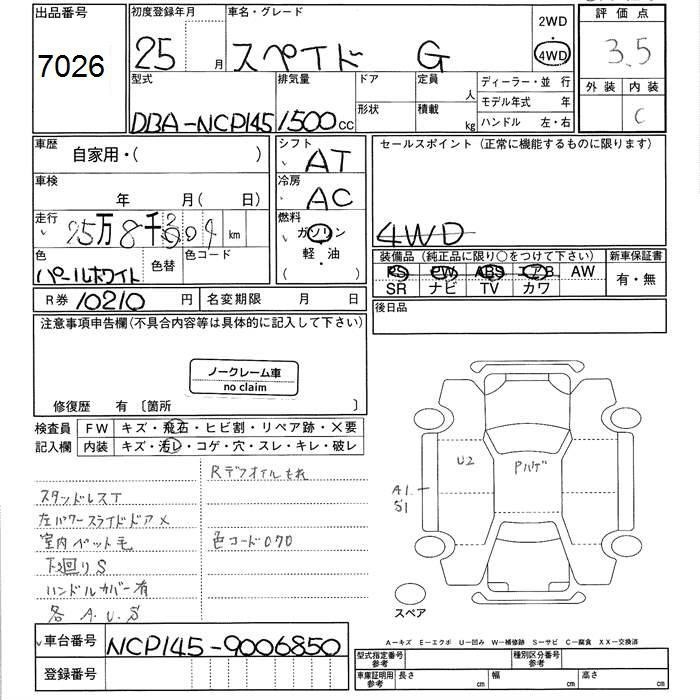 出品番号
7026
初度登録年月
25 月
車名・グレード
スペイド G
2WD
4WD
評価点
3.5
外装 内装
C
型式
DBA-NCP145
排気量
1500cc
ドア
形状
定員
人
積載
kg
ディーラー・並 行
モデル年式 年
ハンドル 左・右
車歴
自家用・( )
車検
年 月( 日)
走行
km
色
パールホワイト
色替
色コード
R券 10210 円
名変期限 月 日
シフト
AT
冷房
AC
燃料
ガソリン
軽・油
セールスポイント(正常に機能するものに限ります)
4WD
装備品(純正品に限り○をつけて下さい)
PS PW ABS エアB AW
SR ナビ TV カワ
新車保証書
有・無
後日品
注意事項申告欄(不具合内容等は具体的に記入して下さい)
ノークレーム車
no claim
修復歴 有 〔箇所 〕
検査員
記入欄
FW キズ・飛石・ヒビ割・リペア跡・X要
内装 キズ・汚レ・コゲ・穴・スレ・キレ・破レ
Rデフオイルもれ
スタッドレスT
左パワースライドドア×
室内ペット毛
色コード070
下回りS
ハンドルカバー有
各 A.U.S
U2
Pハゲ
A1
S1
スペア
A－キズ E－エクボ U－凹み W－補修跡 S－サビ C－腐食 XX－交換済
車台番号 NCP145-9006850
登録番号
型式指定番号
参考
種別区分番号
参考
車庫証明用
参考
長さ cm 幅 cm 高さ cm